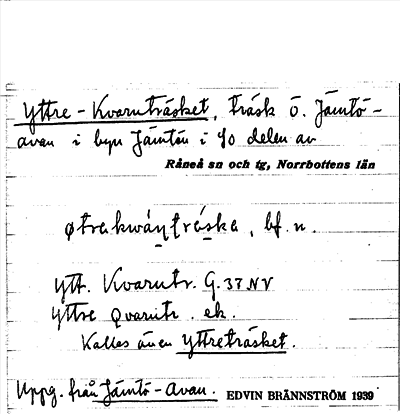 Yttre-Kvarnträsket, träsk ö. Jämtö-
avan i byn Jämtön i sö delen av
Råneå sn och tg, Norrbottens län
øtrekwáṇtrǽske, bf. n.
Ytt. Kvarntr. G. 37 NV
Yttre Qvarntr. ek.
Kallas även Yttreträsket.
Uppg. från Jämtö-Avan. EDVIN BRÄNNSTRÖM 1939